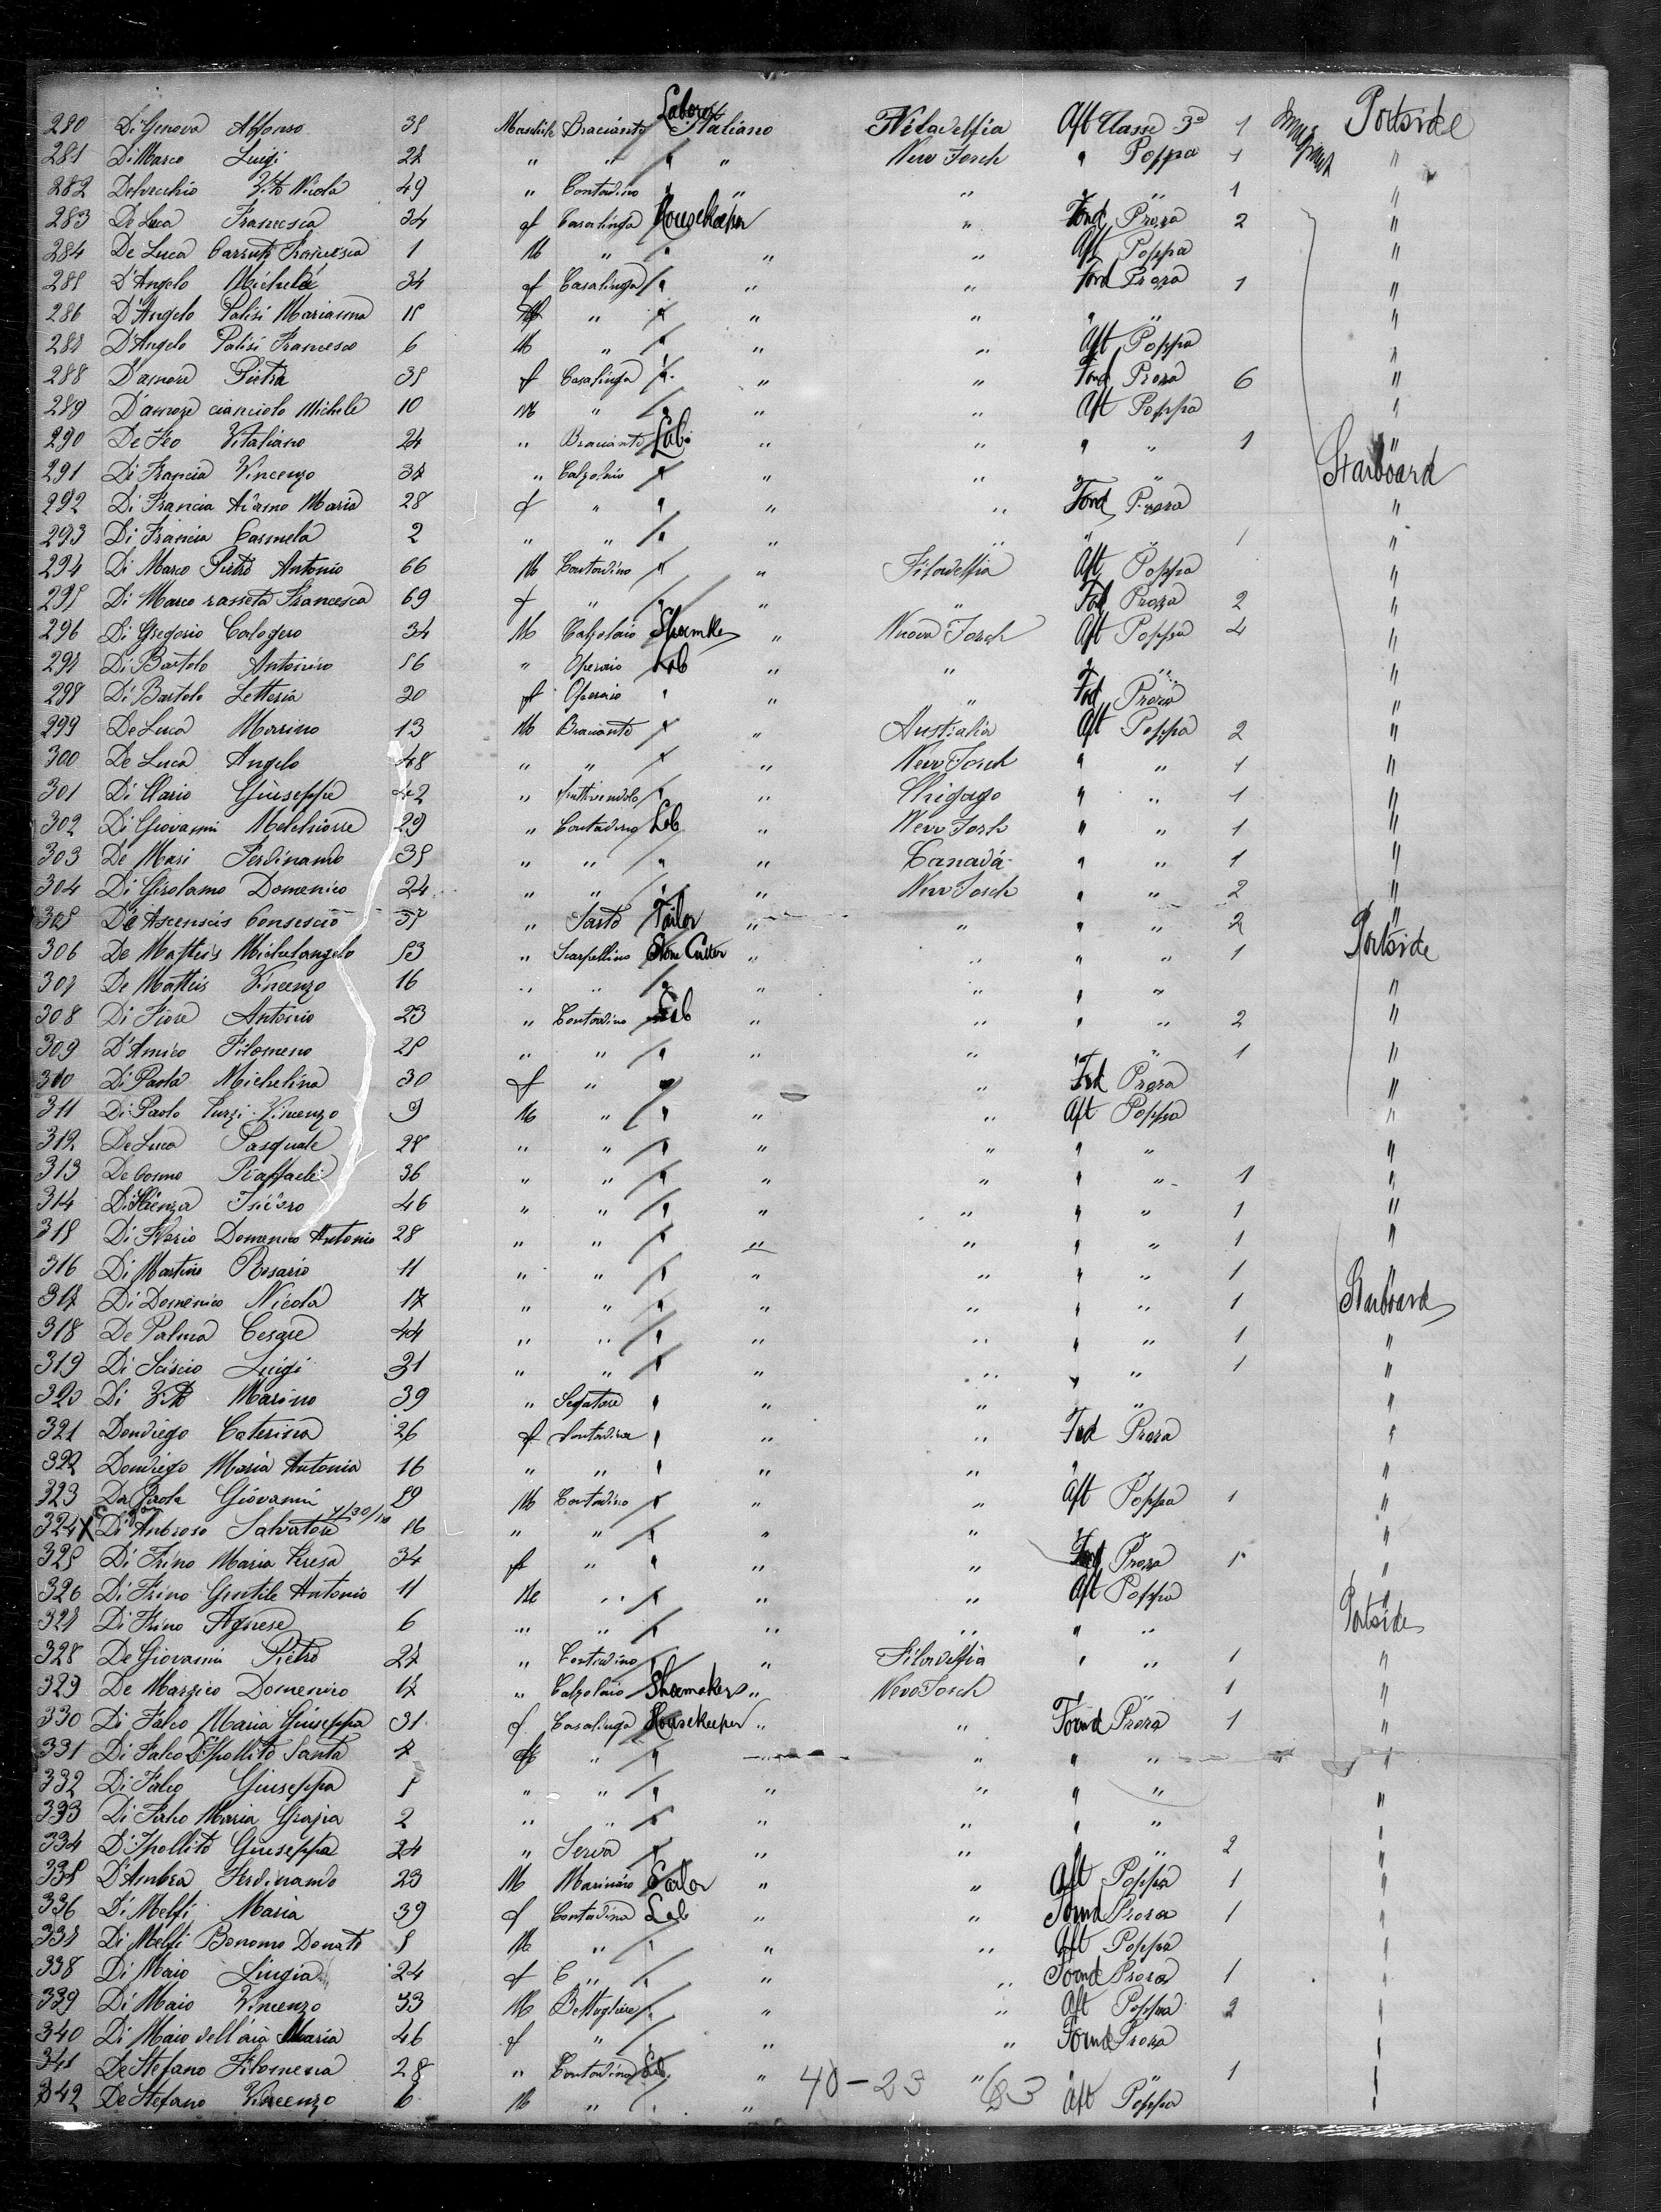 280 Di Genova Alfonso 35 Maschile Bracciante Laborer Italiano Filadelfia Aft Classe 3a 1 Portside
281 Di Marco Luigi 27 " " " " New Jorch " Poppa 1 "
282 Delvecchio Vito Nicola 49 " Contadino " " " " 1 "
283 De Luca Francesca 34 f Casalinga Housekeeper " Forwd Prora 2 "
284 De Luca Francesca 1 M " " " " Aft Poppa "
285 D'Angelo Michela 34 f Casalinga " " " Ford Prora 1 "
286 D'Angelo Palisi Marianna 15 f " " " " " " "
287 D'Angelo Palisi Francesco 6 M " " " " Aft Poppa "
288 D'amore Pietra 35 f Casalinga " " " Ford Prora 6 "
289 D'amore cianciolo Michele 10 M " " " " Aft Poppa "
290 De Feo Vitaliano 24 " Bracciante Lab. " " " " 1 "
291 Di Francia Vincenzo 37 " Calzolaio " " " " " Starboard
292 Di Francia Maria 28 f " " " Ford Prora "
293 Di Francia Carmela 2 " " " " " " " 1 "
294 Di Marco Pietro Antonio 66 M Contadino " " Filadelfia Aft Poppa "
295 Di Marco rasseta Francesca 69 f " " " " Ford Prora 2 "
296 Di Gregorio Calogero 34 M Calzolaio Shoemker " Nuova Jorch Aft Poppa 4 "
297 Di Bartolo Antonino 56 " Operaio Lab " " " " "
298 Di Bartolo Letteria 20 f Operaio " " " Ford Prora "
299 De Luca Marino 13 M Bracciante " " Australia Aft Poppa 2 "
300 De Luca Angelo 48 " " " " New Jorch " " 1 "
301 Di Ilario Giuseppe 42 " fruttivendolo " " Chigago " " 1 "
302 Di Giovanni Melchiorre 29 " Contadino Lab " New Jorh " " 1 "
303 De Masi Ferdinando 35 " " " " Canadá " " 1 "
304 Di Girolamo Domenico 24 " " " " New Jorch " " 2 "
305 De Ascenscis 37 " Sarto Tailor " " " " 2 "
306 De Matteis Michelangelo 53 " Scarpellino Stone Cutter " " " " 1 Portside
307 De Matteis Vincenzo 16 " " " " " " " "
308 Di Fiore Antonio 23 " Contadino Lab " " " " 2 "
309 D'Amico Filomeno 25 " " " " " " " 1 "
310 Di Paola Michelina 30 f " " " Frd Prora "
311 Di Paola Vincenzo 9 M " " " " Aft Poppa "
312 De Luca Pasquale 28 " " " " " " " "
313 De Cosmo Raffaele 36 " " " " " " " 1 "
314 Di Rienza Isidoro 46 " " " " " " " 1 "
315 Di Florio Domenico Antonio 28 " " " " " " " 1 "
316 Di Martino Rosario 11 " " " " " " " 1 "
317 Di Domenico Nicola 17 " " " " " " " 1 Starboard
318 De Palma Cesare 44 " " " " " " " 1 "
319 Di Sciscio Luigi 31 " " " " " " " 1 "
320 Di Vito Marino 39 " Segatore " " " " " "
321 Dondiego Caterina 26 f Contadina " " " Frd Prora "
322 Dondiego Maria Antonia 16 " " " " " " " "
323 Da Paola Giovanni 29 M Contadino " " " Aft Poppa 1 "
324 X Di Ambroso Salvatore 4/30/10 16 " " " " " "
325 Di Frino Maria Teresa 34 f " " " Ford Prora 1 "
326 Di Frino Gentile Antonio 11 M " " " Aft Poppa "
327 Di Frino Agnese 6 " " " " " " " Portside
328 De Giovanni Pietro 27 " Contadino " " Filadelfia " " 1 "
329 De Marzico Domenico 17 " Calzolaio Shoemakers " New Jorch " 1 "
330 Di Falco Maria Giuseppa 31 f Casalinga Housekeeper " " Forwd Prora 1 "
331 Di Falco D'Ippolito Santa 7 f " " " " " " "
332 Di Falco Giuseppa 5 " " " " " " " "
333 Di Falco Maria Grazia 2 " " " " " " " "
334 D'Ippolito Giuseppa 24 " Serva " " " " " 2 "
335 D'Ambra Ferdinando 23 M Marinaio Sailor " " Aft Poppa 1 "
336 Di Melfi Maria 39 f Contadina Lab " " Forwd Prora 1 "
337 Di Melfi Bonomo Donato 5 M " " " " Aft Poppa "
338 Di Maio Luigia 24 f C " " " " Forwd Prora 1 "
339 Di Maio Vincenzo 33 M Bettogliere " " " Aft Poppa 2 "
340 Di Maio dell'aia Maria 46 f " " " Forwd Prora "
341 De Stefano Filomena 28 " Contadina Lab " " " " 1 "
342 De Stefano Vincenzo 6 M " " " 40-23 63 Aft Poppa "